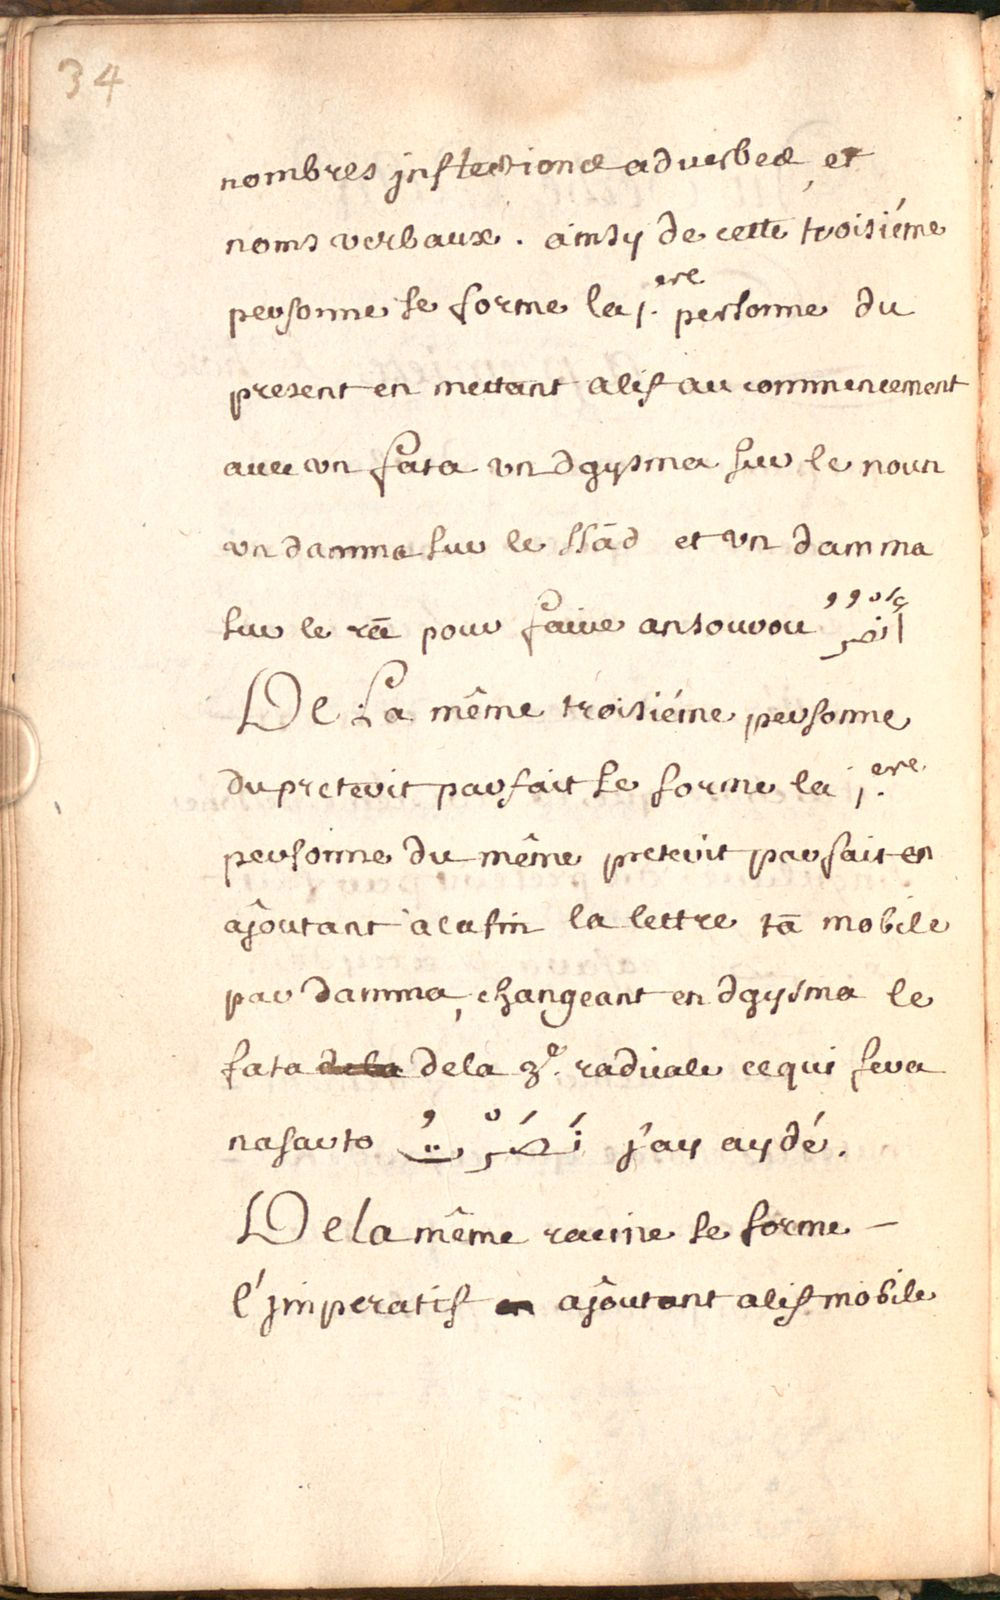 34
nombres jnflections adverbes et
noms verbaux. ainsy de cette troisiéme
personne se forme la 1.ere personne du
present en mettant alif au commencement
avec vn fata vn dgysma sur le noun
vn damma sur le ssād et vn damma
sur le rā pour faire ansourou أَنْصُرُ
De La même troisiéme personne
du preterit parfait se forme la 1.ere
personne du même preterit parfait en
ajoutant a la fin la lettre tā mobile
par damma, changeant en dgysma le
fata de la de la 3.e radicale ce qui sera
nasarto نَصَرْتُ j'ay aydé.
De la même racine se forme —
l'jmperatif en ajoutant alif mobile